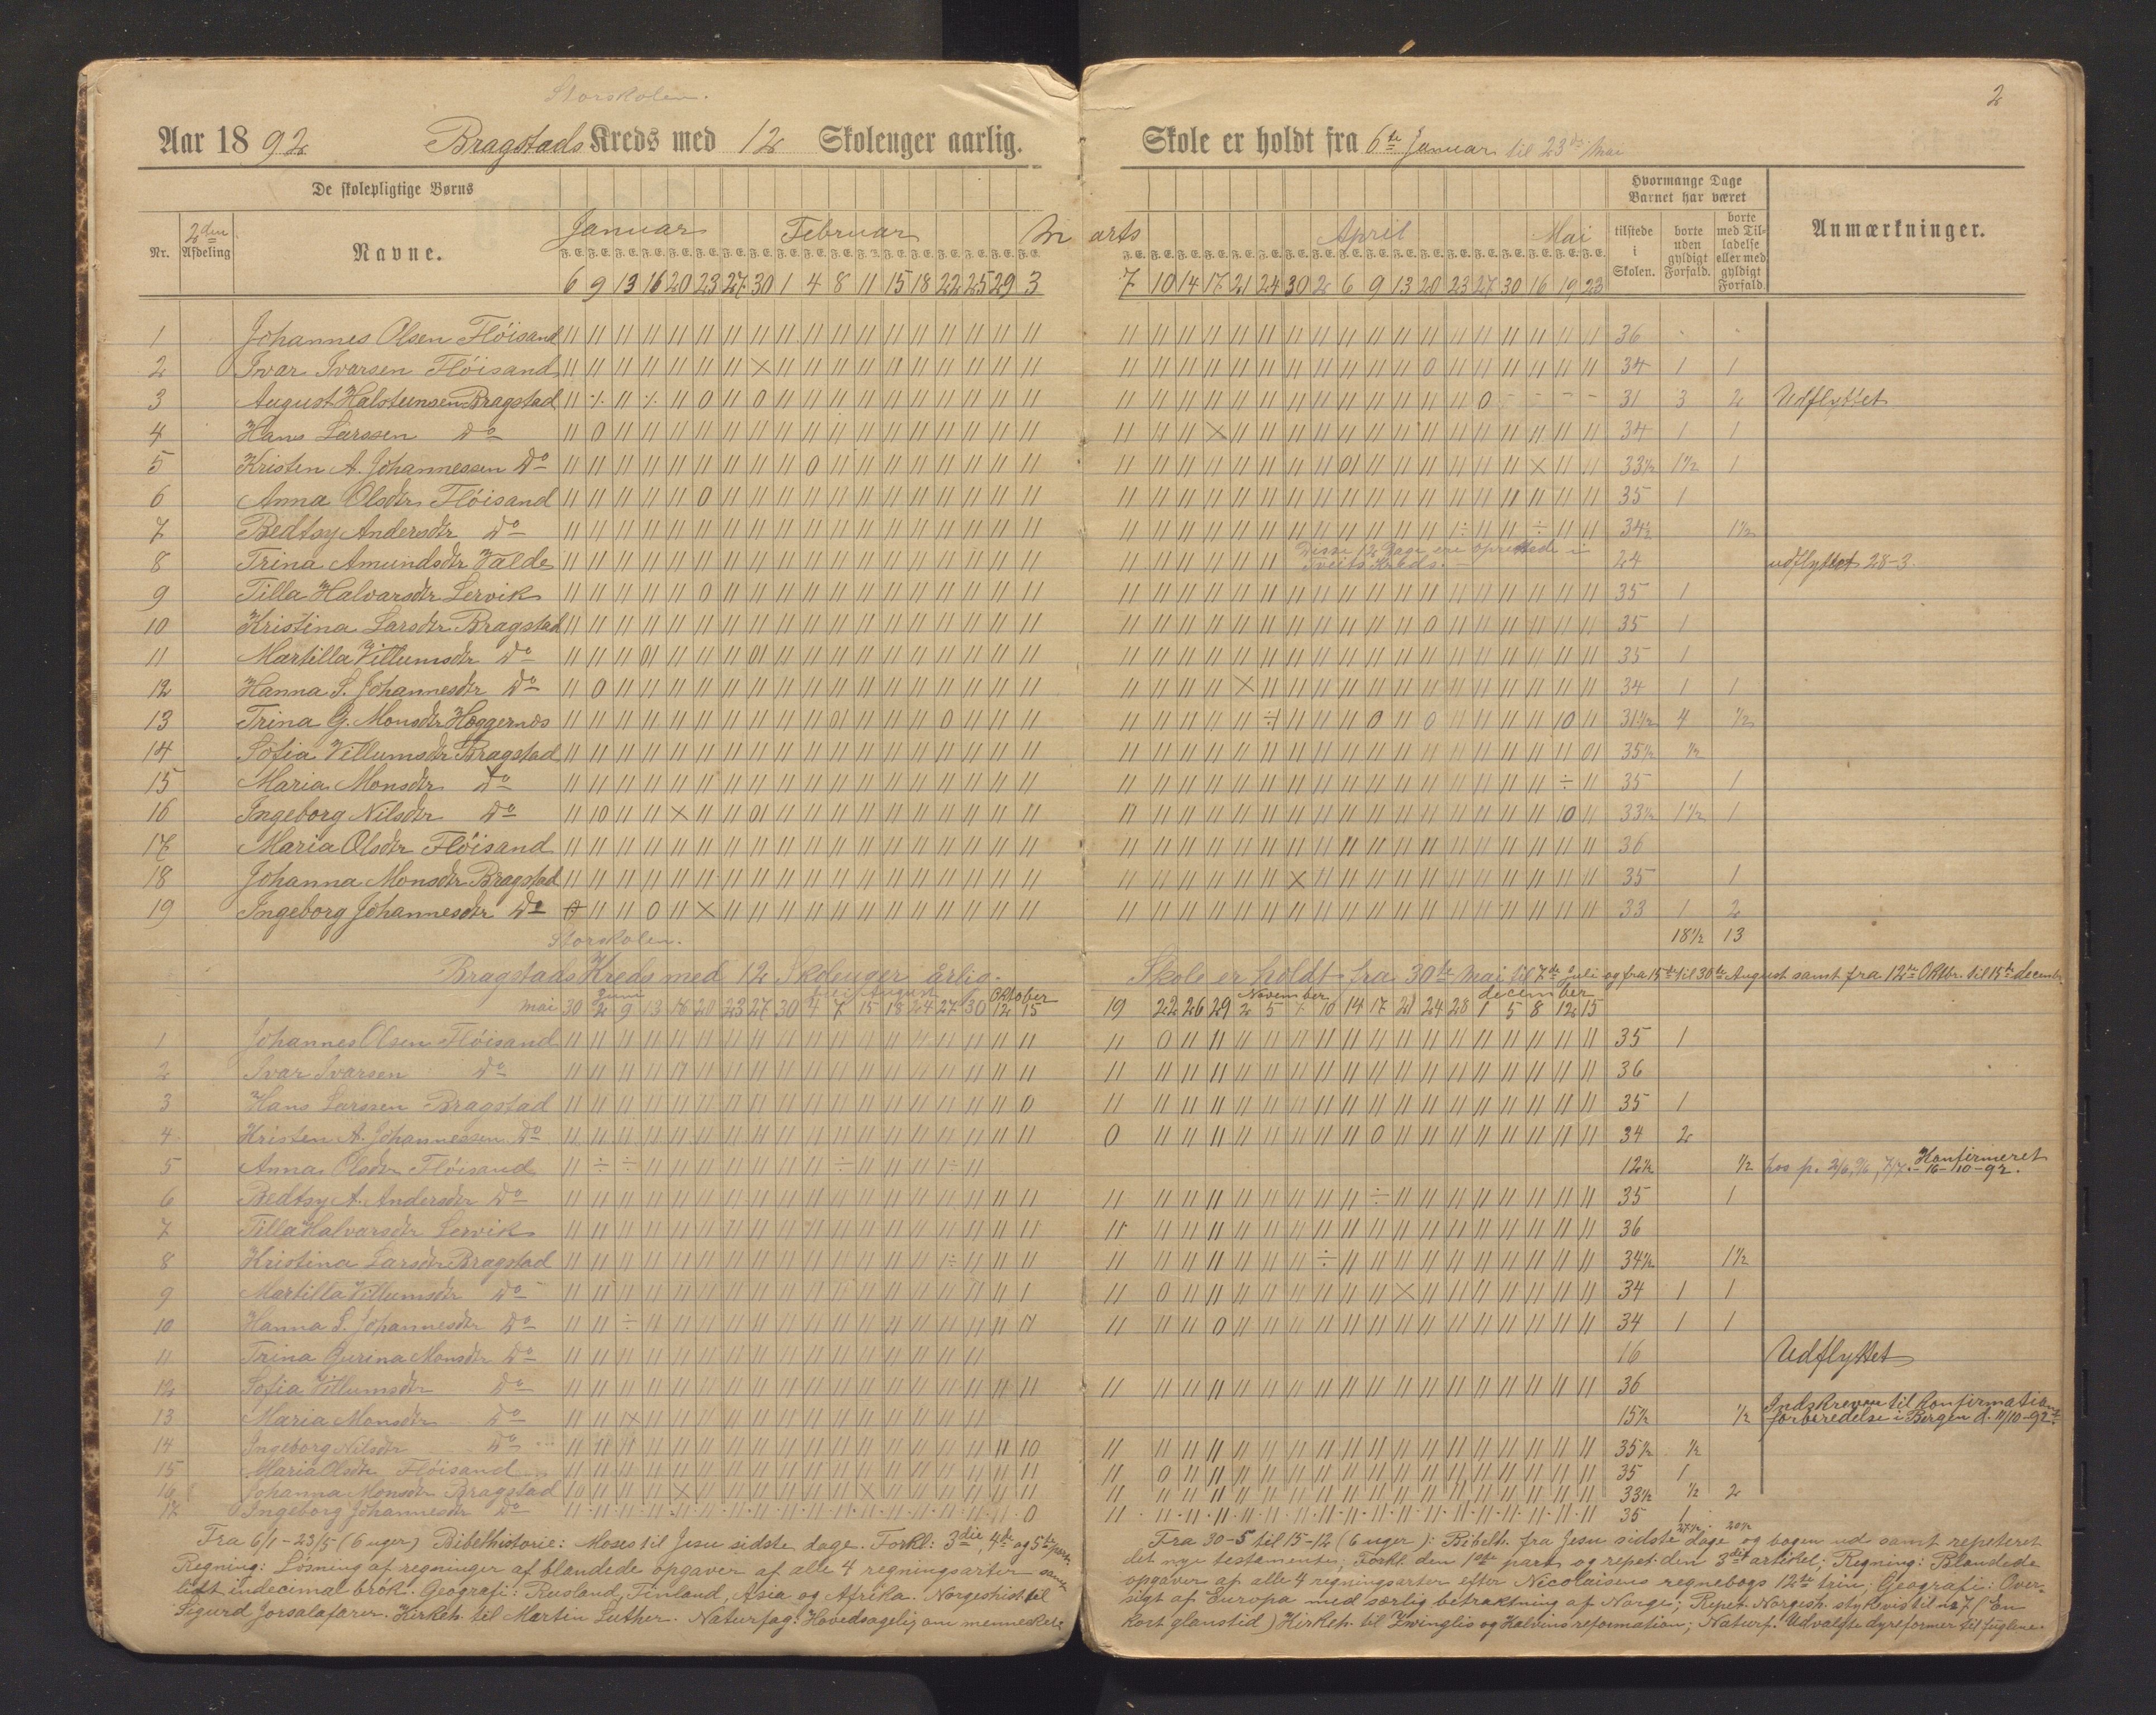 Storskolen.
Aar 1892 Bragstads Kreds med 12 Skolenger aarlig.
De skolepligtige Børns
Nr. 2den Afdeling Navne. Januar Februar M
6 9 13 16 20 23 27 30 1 4 8 11 15 18 22 25 29 3
1 Johannes Olsen Flöisand
2 Ivar Ivarsen Flöisand
3 August Halstensen Bragstad
4 Hans Larssen Do
5 Kristen A. Johannessen Do
6 Anna Olsdtr Flöisand
7 Bedtsy Andersdtr Do
8 Trina Amundsdtr Valde
9 Tilla Halvarsdtr Lervik
10 Kristina Larsdtr Bragstad
11 Martilla Villumsdtr Do
12 Hanna S. Johannesdtr Do
13 Trina G. Monsdtr Høggernes
14 Sofia Villumsdtr Bragstad
15 Maria Monsdtr Do
16 Ingeborg Nilsdtr Do
17 Maria Olsdtr Flöisand
18 Johanna Monsdtr Bragstad
19 Ingeborg Johannesdtr Do
Storskolen.
Bragstads Kreds med 12 Skoleuger årlig.
juni august Oktober
mai 30 2 9 13 16 20 23 27 30 4 7 15 18 24 27 30 12 15
1 Johannes Olsen Flöisand
2 Ivar Ivarsen Do
3 Hans Larssen Bragstad
4 Kristen A. Johannessen Do
5 Anna Olsdtr Flöisand
6 Bedtsy A. Andersdtr Do
7 Tilla Halvarsdtr Lervik
8 Kristina Larsdtr Bragstad
9 Martilla Villumsdtr Do
10 Hanna S. Johannesdtr Do
11 Trina Gurina Monsdtr Do
12 Sofia Villumsdtr Do
13 Maria Monsdtr Do
14 Ingeborg Nilsdtr Do
15 Maria Olsdtr Flöisand
16 Johanna Monsdtr Bragstad
17 Ingeborg Johannesdtr Do
Fra 6/1 - 23/5 (6 uger) Bibelhistorie: Moses til Jesu sidste dage. Forkl: 3die, 4de og 5te part.
Regning: Løsning af regninger af blandede opgaver af alle 4 regningsarter samt
lidt i decimal brök. Geografi: Rusland, Finland, Asia og Afrika. Norgeshist. til
Sigurd Jorsalafarer. Kirkeh. til Martin Luther. Naturfag: Hovedsagelig om mennesket.
2
Skole er holdt fra 6te Januar til 23de Mai
arts April Mai
Hvormange Dage Barnet har været
tilstede i Skolen. borte uden gyldigt Forfald. borte med Tilladelse eller med gyldigt Forfald.
Anmærkninger.
7 10 14 17 21 24 30 2 6 9 13 20 23 27 30 16 19 23
36 - -
34 1 1
31 3 2 Udflyttet
34 1 1
33½ 1½ 1
35 1
34½ 1½
Disse 12 Dage ere oprettede i
Tveits Kreds. 24 udflyttet 28-3.
35 1
35 1
35 1
34 1 1
31½ 4 ½
35½ ½
35 1
33½ 1½ 1
36
35 1
33 1 2
18½ 13
Skole er holdt fra 30te Mai til 7de juli og fra 15de til 30te August samt fra 12te Oktbr. til 15te decemb.
November december
19 22 26 29 2 5 7 10 14 17 21 24 28 1 5 8 12 15
35 1
36
35 1
34 2
12½ ½ hos p. 2/6, 9/6, 7/7. - Konfirmeret 16-10-92.
35 1
36
34½ 1½
34 1 1
34 1 1
16 Udflyttet
36
15½ ½ Indskreven til Konfirmations
forberedelse i Bergen d. 11/10-92.
35½ ½
35 1
33½ ½ 2
35 1
Fra 30-5 til 15-12 (6 uger): Bibelh. fra Jesu sidste dage og bogen ud samt repeteret
det nye testamente; Forkl. den 1ste part og repet. den 3die artikel; Regning: Blandede
opgaver af alle 4 regningsarter efter Nicolaisens regnebogs 12te trin; Geografi: Over-
sigt af Europa med særlig betraktning af Norge; Repet. Norgesh. stykvis til no 7 (En
kort glanstid) Kirkeh. til Zwinglis og Kalvins reformation; Naturf. Udvalgte dyreformer til fuglene.